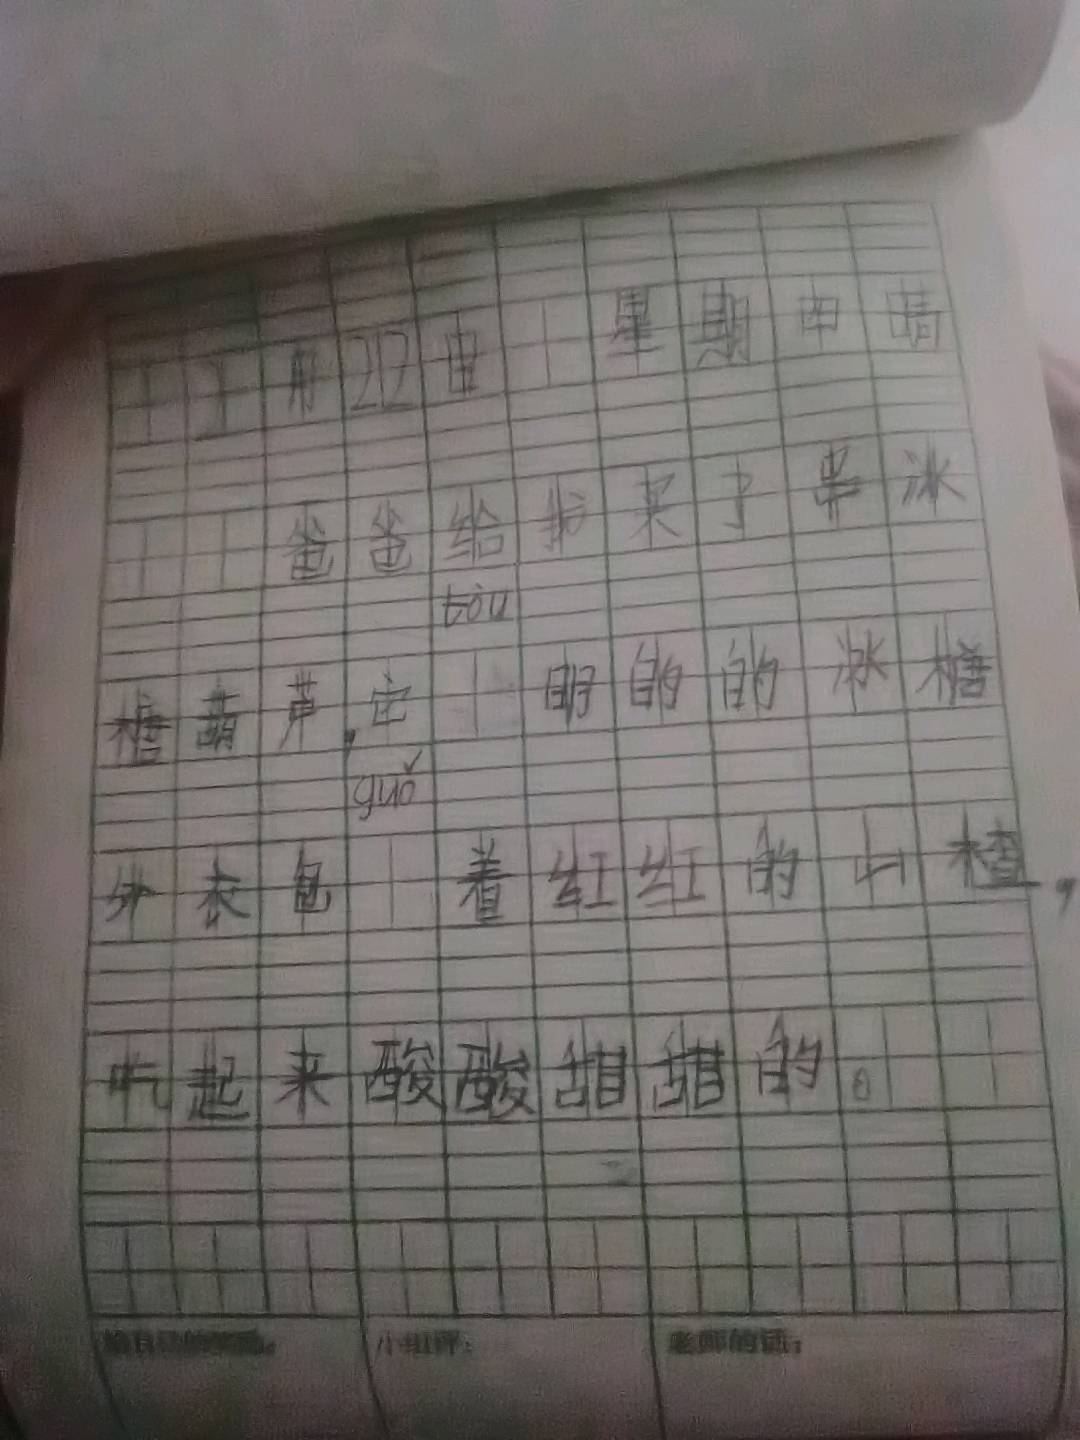 月212日 星期四晴
爸爸给我买了串冰
tòu
糖葫芦,它 明的的冰糖
guǒ
外衣包 着红红的山楂,
吃起来酸酸甜甜的。
小组评: 老师的话: